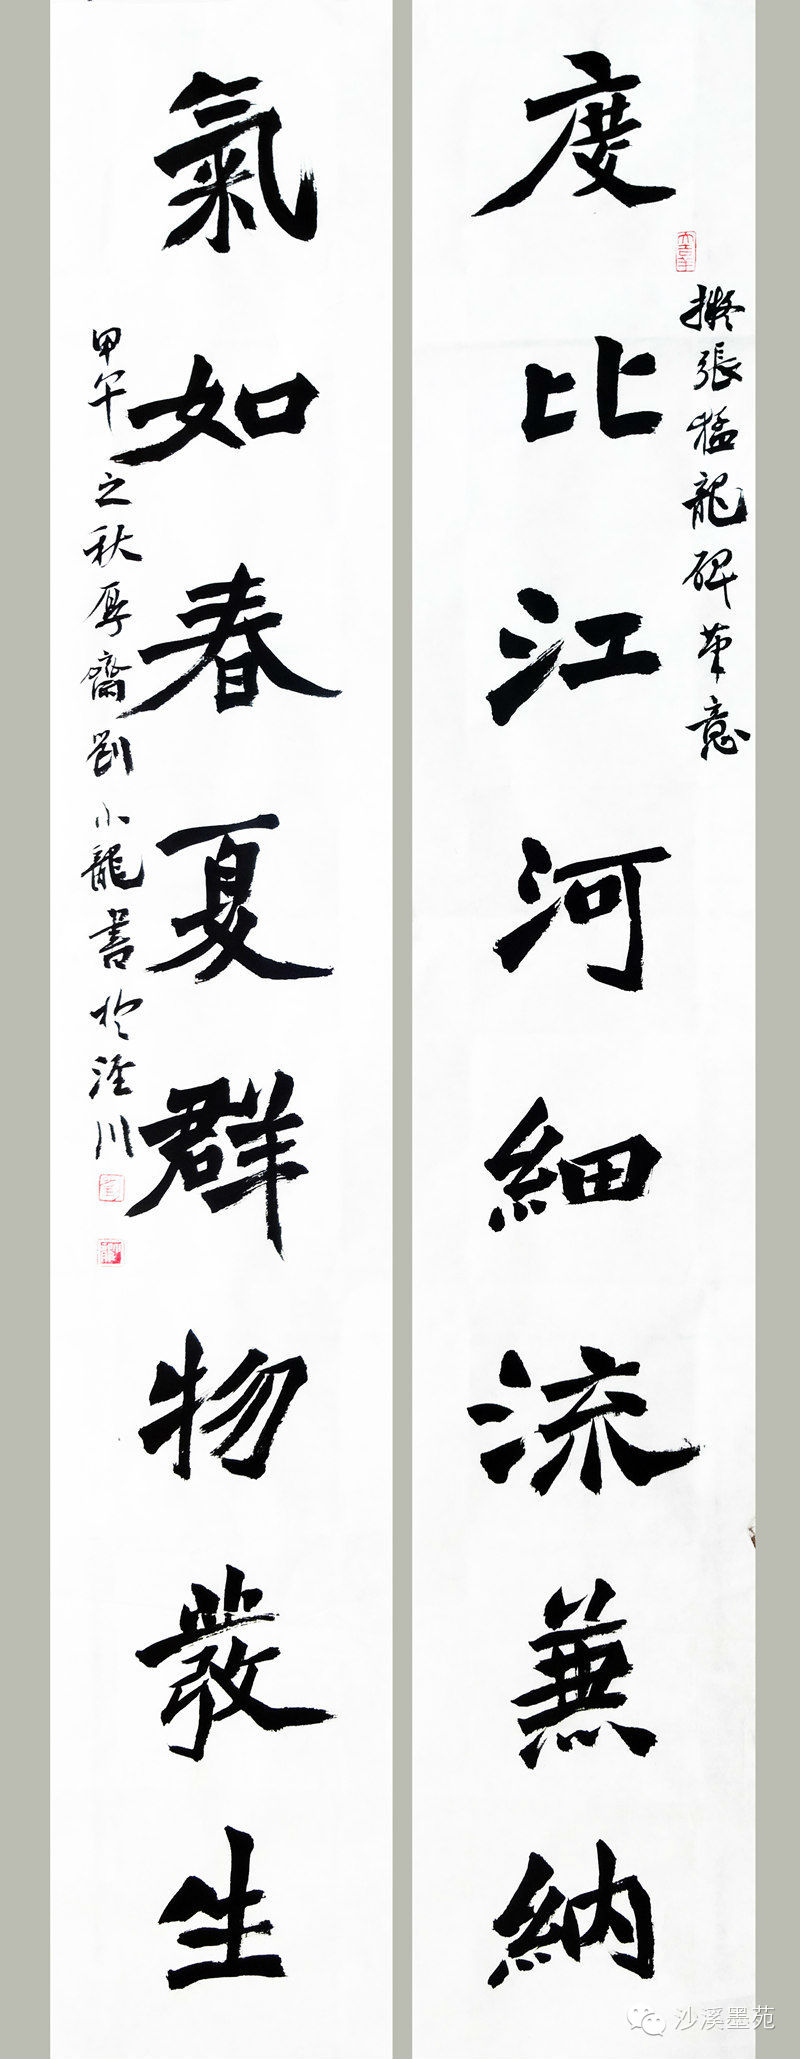 度比江河細流兼納
擬張猛龍碑筆意
氣如春夏群物發生
甲午之秋厚齋劉小龍書於涇川
沙溪墨苑